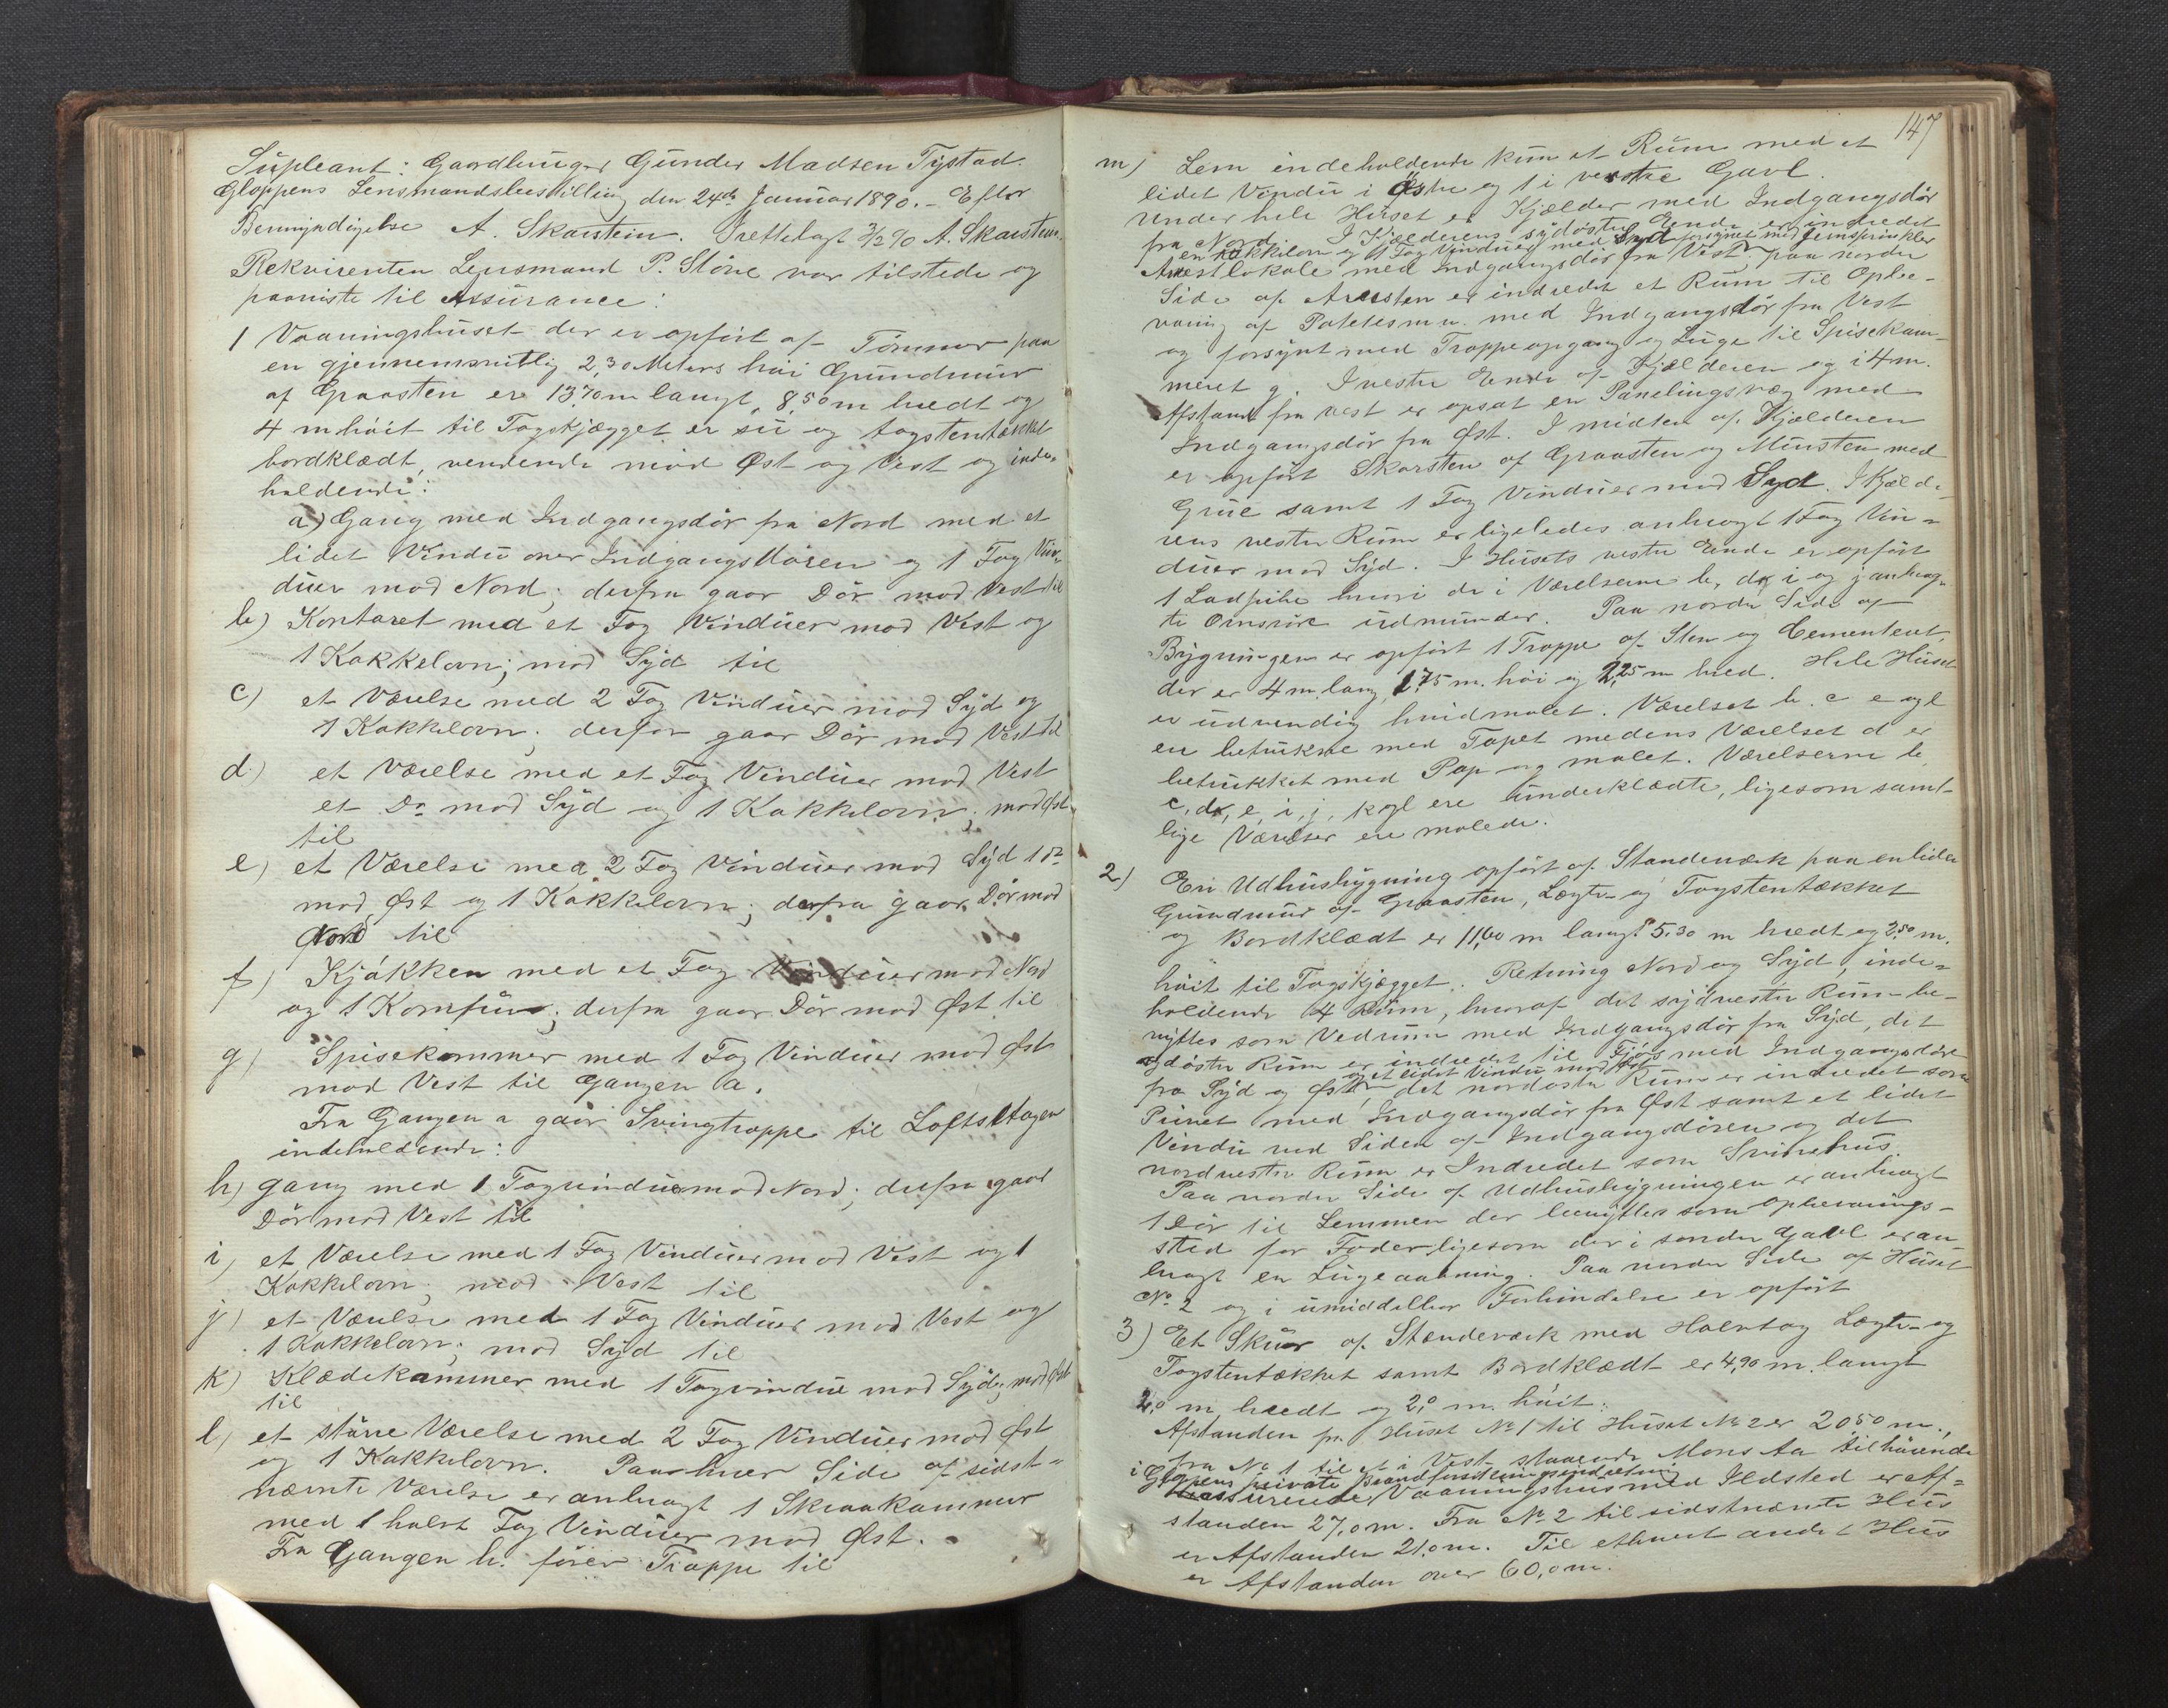 Supleant: Gaardbruger Gunder Madsen Tystad.
Gloppens Lensmandsbestilling den 24de Januar 1890. - Efter
Bemyndigelse A. Skarstein. Frettelagt 3/2 90 A. Skarstein.
Rekvirenten Lensmand P. Störe var tilstede og
paaviste til Assurance:
1 Vaaningshuset der er opfört af Tömmer paa
en gjennemsnitlig 2,30 Meters höi Grundmur
af Graasten er 13,70 m langt, 8,50 m bredt og
4 m höit til Tagskjægget er su og tagstentækket
bordklædt, vendende mod Øst og Vest og inde-
holdende:
a) Gang med Indgangsdör fra Nord med et
lidet Vindu over Indgangsdören og 1 Fag Vin-
duer mod Nord; derfra gaar Dör mod Vest til
b) Kontoret med et Fag Vinduer mod Vest og
1 Kakkelovn; mod Syd til
c) et Værelse med 2 Fag Vinduer mod Syd og
1 Kakkelovn; derfra gaar Dör mod Vest til
d) et Værelse med et Fag Vinduer mod Vest
et Do mod Syd og 1 Kakkelovn; mod Øst
til
e) et Værelse med 2 Fag Vinduer mod Syd 1 Do
mod Øst og 1 Kakkelovn; derfra gaar Dör mod
Nord til
f) Kjökken med et Fag Vinduer mod Nord
og 1 Komfur; derfra gaar Dör mod Øst til
g) Spisekammer med 1 Fag Vinduer mod Øst
mod Vest til Gangen a.
Fra Gangen a gaar Svingtrappe til Loftsetagen
indeholdende:
h) gang med 1 Tagvindue mod Nord; derfra gaar
Dör mod Vest til
i) et Værelse med 1 Fag Vinduer mod Vest og 1
Kakkelovn; mod Vest til
j) et Værelse med 1 Fag Vinduer mod Vest og
1 Kakkelovn; mod Syd til
k) Klædekammer med 1 Tagvindue mod Syd; mod Øst
til
l) et större Værelse med 2 Fag Vinduer mod Øst
og 1 Kakkelovn. Paa hver Side af sidst-
nævnte Værelse er anbragt 1 Skraakammer
med 1 halvt Fag Vinduer mod Øst.
Fra Gangen h. förer Trappe til
147
m) Lem indeholdende kun et Rum med et
lidet Vindu i östre og 1 i vestre Gavl.
Under hele Huset er Kjælder med Indgangsdör
fra Nord. I Kjælderens sydöstre Ende er indredet
en Kakkelovn og 1 Fag Vinduer mod Syd forsynet med Jernsprinkler
Arrestlokale med Indgangsdör fra Vest paa nordre
Side af Arresten er indredet et Rum til Opbe-
varing af Poteter m.m. med Indgangsdör fra Vest
og forsynt med Trappeopgang og Luge til Spisekam-
meret g. I vestre Ende af Kjælderen og i 4 m.
Afstand fra vest er opsat en Panelingsvæg med
Indgangsdör fra Øst. I midten af Kjælderen
er opfört Skorsten af Graasten og Mursten med
Grue samt 1 Fag Vinduer mod Syd. I Kjælde-
rens vestre Rum er ligeledes anbragt 1 Fag Vin-
duer mod Syd. I Husets vestre Ende er opfört
1 Ladpibe hvori de i Værelserne b, d, i og j anbrag-
te Ovnsrör udmunder. Paa nordre Side af
Bygningen er opfört 1 Trappe af Sten og Cementeret,
der er 4 m. lang, 1,75 m. höi og 2,25 m bred. Hele Huset
er udvendig hvidmalet. Værelset b. c e og l
er betrukne med Tapet medens Værelset d er
betrukket med Pap og malet. Værelserne b,
c, d, e, i, j, k og l ere underklædte, ligesom samt-
lige Værelser ere malede.
2) En Udhusbygning opfört af Standeværk paa en liden
Grundmur af Graasten, Lægte- og Tagstentækket
og Bordklædt er 11,60 m langt 5,30 m bredt og 2,50 m.
höit til Tagskjægget. Retning Nord og Syd, inde-
holdende 4 Rum, hvoraf det sydvestre Rum be-
nyttes som Vedrum med Indgangsdör fra Syd, det
sydöstre Rum er indredet til Fjös med Indgangsdöre
og et lidet Vindu mod Øst
fra Syd og Øst, det nordöstre Rum er indredet som
Privet med Indgangsdör fra Øst samt et lidet
Vindu ved Siden af Indgangsdören og det
nordvestre Rum er Indredet som Svinehus
Paa nordre Side af Udhusbygningen er anbragt
1 Dör til Lemmen der benyttes som Opbevarings-
sted for Foder ligesom der i söndre Gavl er an-
bragt en Lugeaabning. Paa nordre Side af Huset
No 2 og i umiddelbar Forbindelse er opfört
3) Et Skur af Stænderværk med Halvtag Lægte- og
Tagstentækket samt Bordklædt er 4,90 m. langt
2,0 m. bredt og 2,0 m. höit.
Afstanden fra Huset No 1 til Huset No 2 er 20,50 m.,
fra No 1 til et i Vest staaende Mons Aa tilhörende
i Gloppens private Brandforsikringsindretning
assurerede Vaaningshus med Ildsted er Af-
standen 27,0 m. Fra No 2 til sidstnævnte Hus
er Afstanden 21,0 m. Til ethvert andet Hus
er Afstanden over 60,0 m.